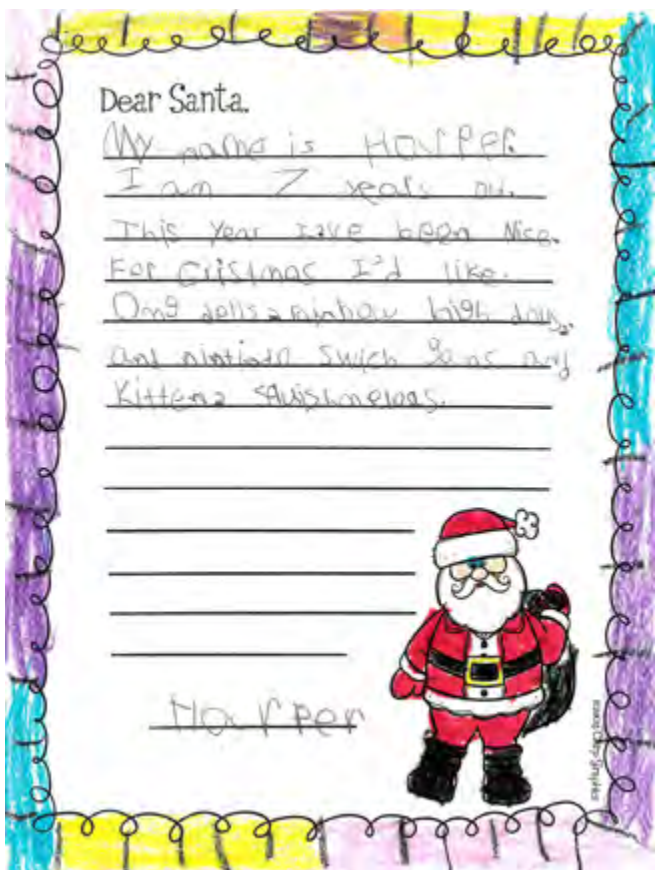 Dear Santa.
My name is Harper.
I am 7 years old.
This year I have been Nice.
For Cristmas I'd like.
Omg dolls rainbow high dolls,
and swich and
Kittens squishmelows.
Harper